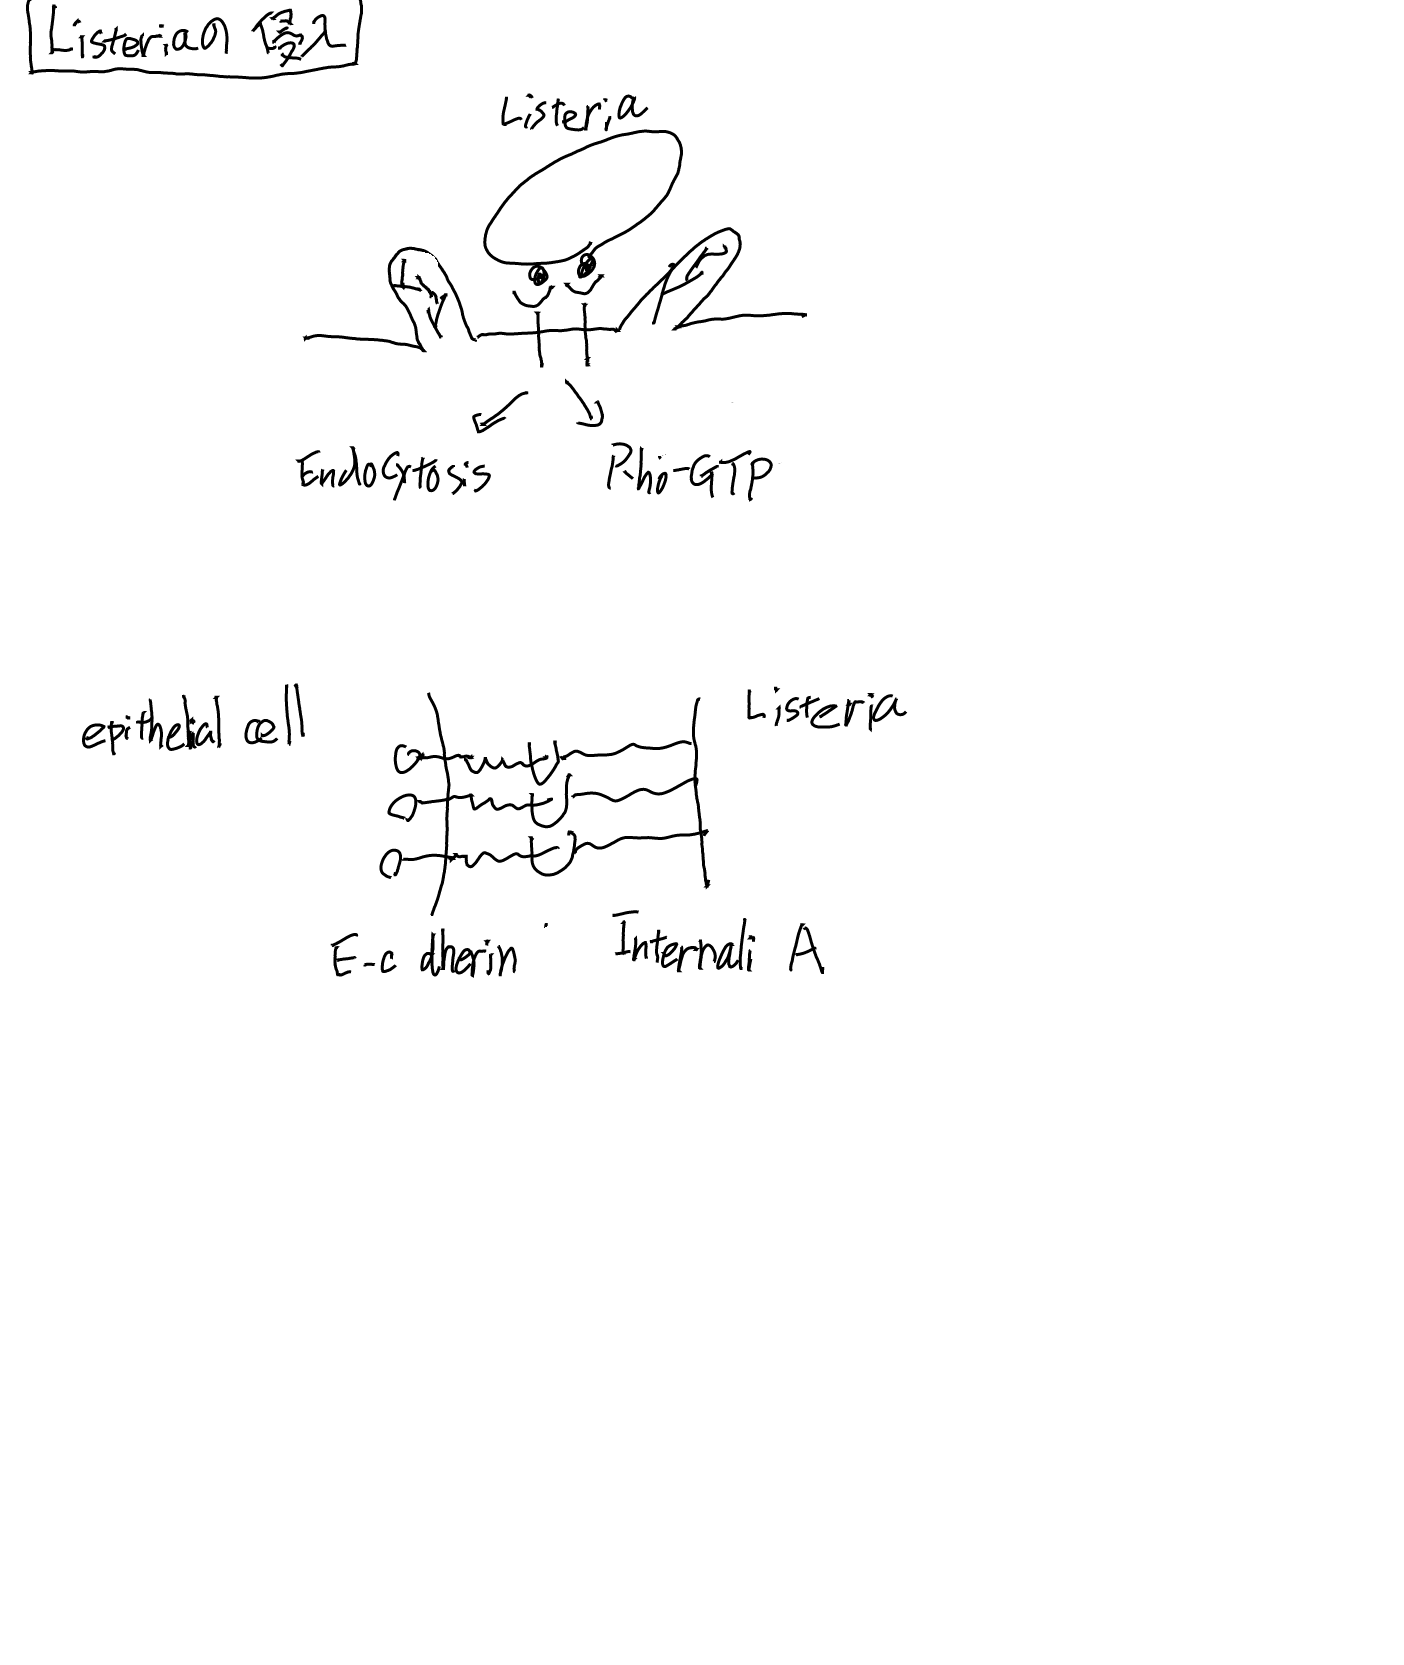 Listeriaの侵入
Listeria
Endocytosis
Rho-GTP
epithelial cell
Listeria
E-c dherin
Internali A